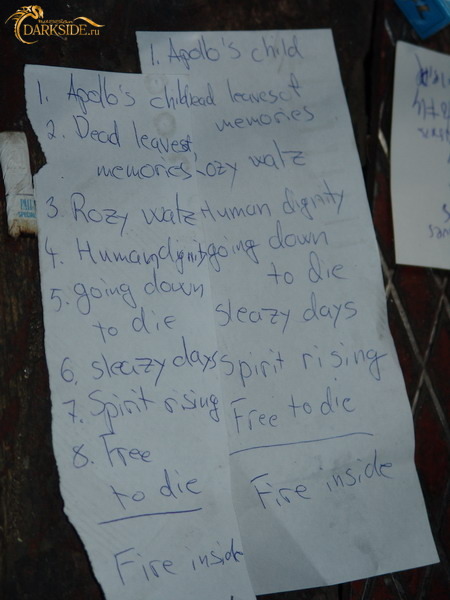 DARKSIDE.ru
1. Apollo's child
2. Dead leaves of
memories
3. Rozy waltz
4. Human dignity
5. going down
to die
6. sleazy days
7. Spirit rising
8. Free
to die
Fire inside
1. Apollo's child
ead leaves of
memories
ozy waltz
Human dignity
going down
to die
sleazy days
Spirit rising
Free to die
Fire inside